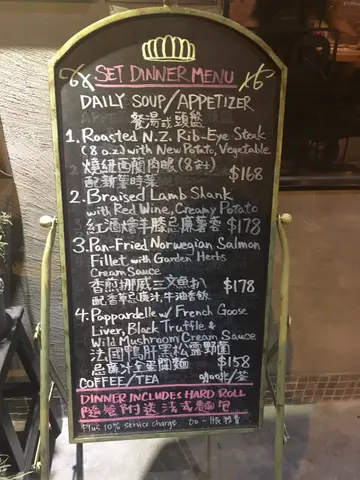 SET DINNER MENU
DAILY SOUP/APPETIZER
餐湯或頭盤
1. Roasted N.Z. Rib-Eye Steak
(8oz) with New Potato, Vegetable
燒紐西蘭肉眼(8安士)
配新薯時菜 $168
2. Braised Lamb Shank
with Red Wine, Creamy Potato
紅酒燴羊膝忌廉薯蓉 $178
3. Pan-Fried Norwegian Salmon
Fillet with Garden Herbs
Cream Sauce
香煎挪威三文魚扒 $178
配香草忌廉汁,牛油香飯
4. Pappardelle w/ French Goose
Liver, Black Truffle &
Wild Mushroom Cream Sauce
法國鴨肝黑松露野菌
忌廉汁全蛋闊麵 $158
COFFEE/TEA 咖啡/茶
DINNER INCLUDES HARD ROLL
隨餐附送法式麵包
Plus 10% service charge 加一服務費